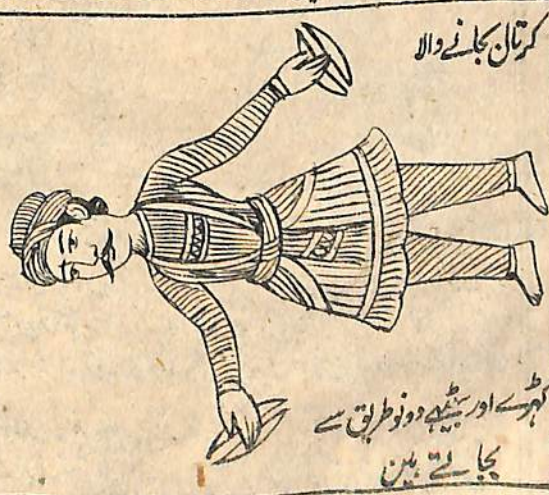 کرتان بجانے والا
کہڑے اور بیٹھے دونو طریق سے
بجاتے ہین